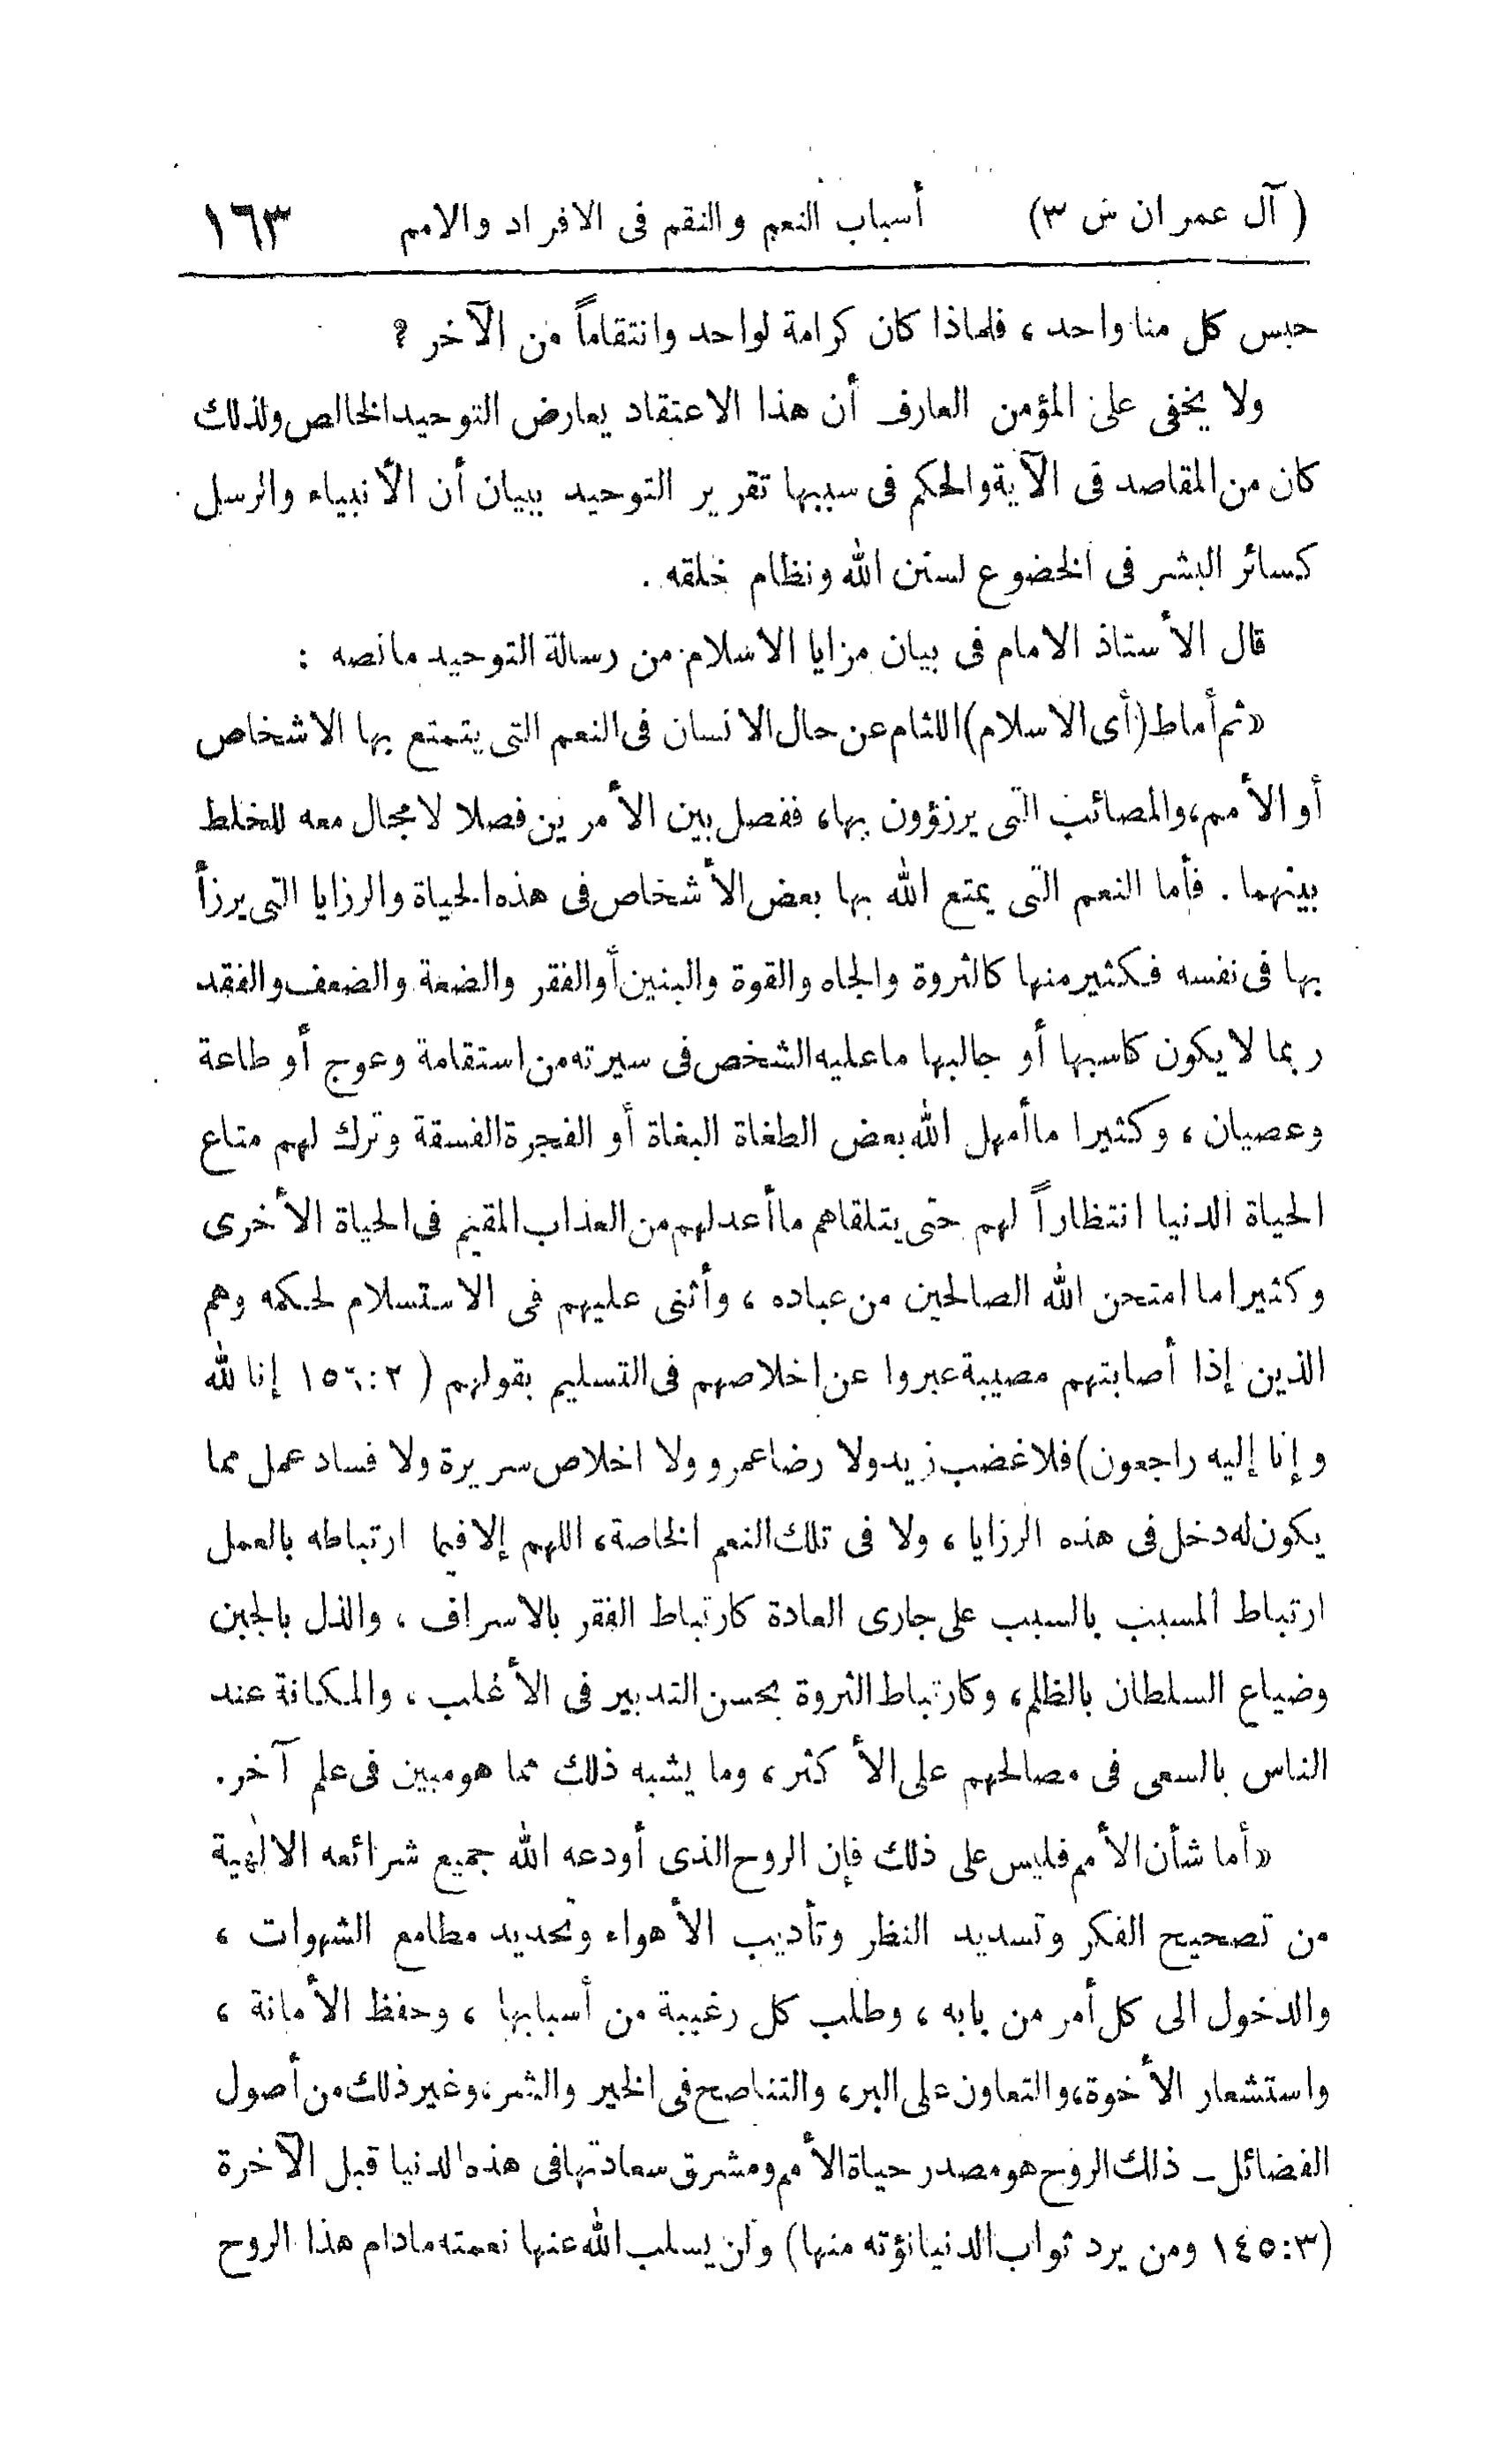 ( آل عمران س ٣) أسباب النعم والنقم فى الافراد والامم ١٦٣
حبس كل منا واحد ، فلماذا كان كرامة لواحد وانتقاماً من الآخر ؟
ولا يخفى على المؤمن العارف أن هذا الاعتقاد يعارض التوحيد الخالص ولذلك
كان من المقاصد فى الآية والحكم فى سببها تقرير التوحيد ببيان أن الأنبياء والرسل
كسائر البشر فى الخضوع لسنن الله ونظام خلقه .
قال الأستاذ الامام فى بيان مزايا الاسلام من رسالة التوحيد مانصه :
«ثم أماط (أى الاسلام) اللثام عن حال الانسان فى النعم التى يتمتع بها الاشخاص
أو الأمم، والمصائب التى يرزؤون بها، ففصل بين الأمرين فصلا لا مجال معه للخلط
بينهما . فأما النعم التى يمتع الله بها بعض الأشخاص فى هذه الحياة والرزايا التى يرزأ
بها فى نفسه فكثير منها كالثروة والجاه والقوة والبنين أو الفقر والضعة والضعف والفقد
ربما لا يكون كاسبها أو جالبها ما عليه الشخص فى سيرته من استقامة وعوج أو طاعة
وعصيان ، وكثيرا ما أمهل الله بعض الطغاة البغاة أو الفجرة الفسقة وترك لهم متاع
الحياة الدنيا انتظاراً لهم حتى يتلقاهم ما أعد لهم من العذاب المقيم فى الحياة الأخرى
وكثيرا ما امتحن الله الصالحين من عباده ، وأثنى عليهم فى الاستسلام لحكمه وهم
الذين إذا أصابتهم مصيبة عبروا عن اخلاصهم فى التسليم بقولهم ( ٢:١٥٦ إنا لله
وإنا إليه راجعون) فلا غضب زيد ولا رضا عمرو ولا اخلاص سريرة ولا فساد عمل مما
يكون له دخل فى هذه الرزايا ، ولا فى تلك النعم الخاصة ، اللهم إلا فيما ارتباطه بالعمل
ارتباط المسبب بالسبب على جارى العادة كارتباط الفقر بالاسراف ، والذل بالجبن
وضياع السلطان بالظلم، وكارتباط الثروة بحسن التدبير فى الأغلب ، والمكانة عند
الناس بالسعى فى مصالحهم على الأكثر ، وما يشبه ذلك مما هو مبين فى علم آخر.
«أما شأن الأمم فليس على ذلك فإن الروح الذى أودعه الله جميع شرائعه الالهية
من تصحيح الفكر وتسديد النظر وتأديب الأهواء وتحديد مطامع الشهوات ،
والدخول الى كل أمر من بابه ، وطلب كل رغيبة من أسبابها ، وحفظ الأمانة ،
واستشعار الأخوة، والتعاون على البر، والتناصح فى الخير والشر، وغير ذلك من أصول
الفضائل ــ ذلك الروح هو مصدر حياة الأمم ومشرق سعادتها فى هذه الدنيا قبل الآخرة
(٣:١٤٥ ومن يرد ثواب الدنيا نؤته منها) ولن يسلب الله عنها نعمته مادام هذا الروح